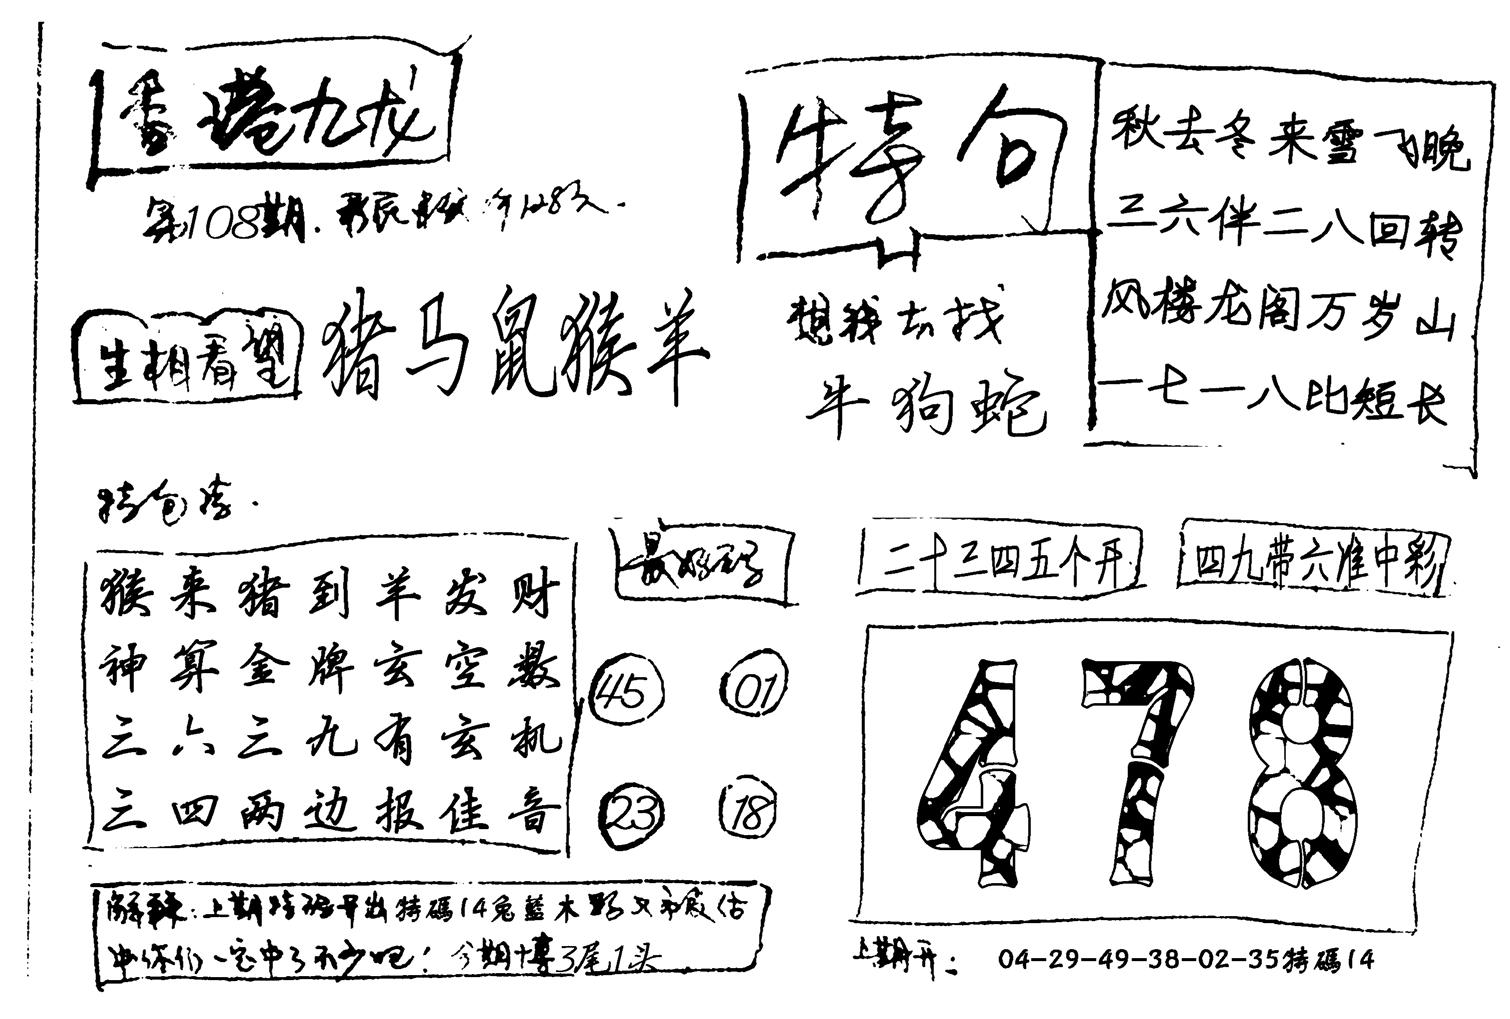 香港九龙
第108期.
生相看望
猪马鼠猴羊
特句
想我去找
牛狗蛇
秋去冬来雪飞晚
三六伴二八回转
风楼龙阁万岁山
一七一八比短长
特包
猴来猪到羊发财
神算金牌玄空数
三六三九有玄机
三四两边报佳音
最好
45 01
23 18
二十三四五个开
四九带六准中彩
478
解 : 上期特码开出特碼14兔藍木
中你们一定中了不少吧! 今期博3尾1头
上期开: 04-29-49-38-02-35特碼14